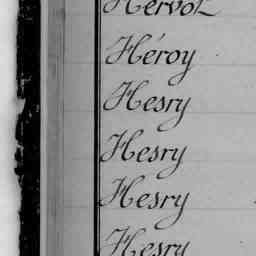 Hervot
Héroy
Hesry
Hesry
Hesry
Hesry